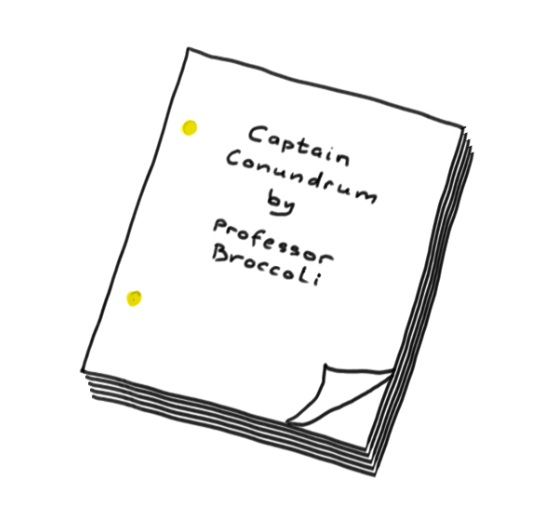 Captain
Conundrum
by
Professor
Broccoli